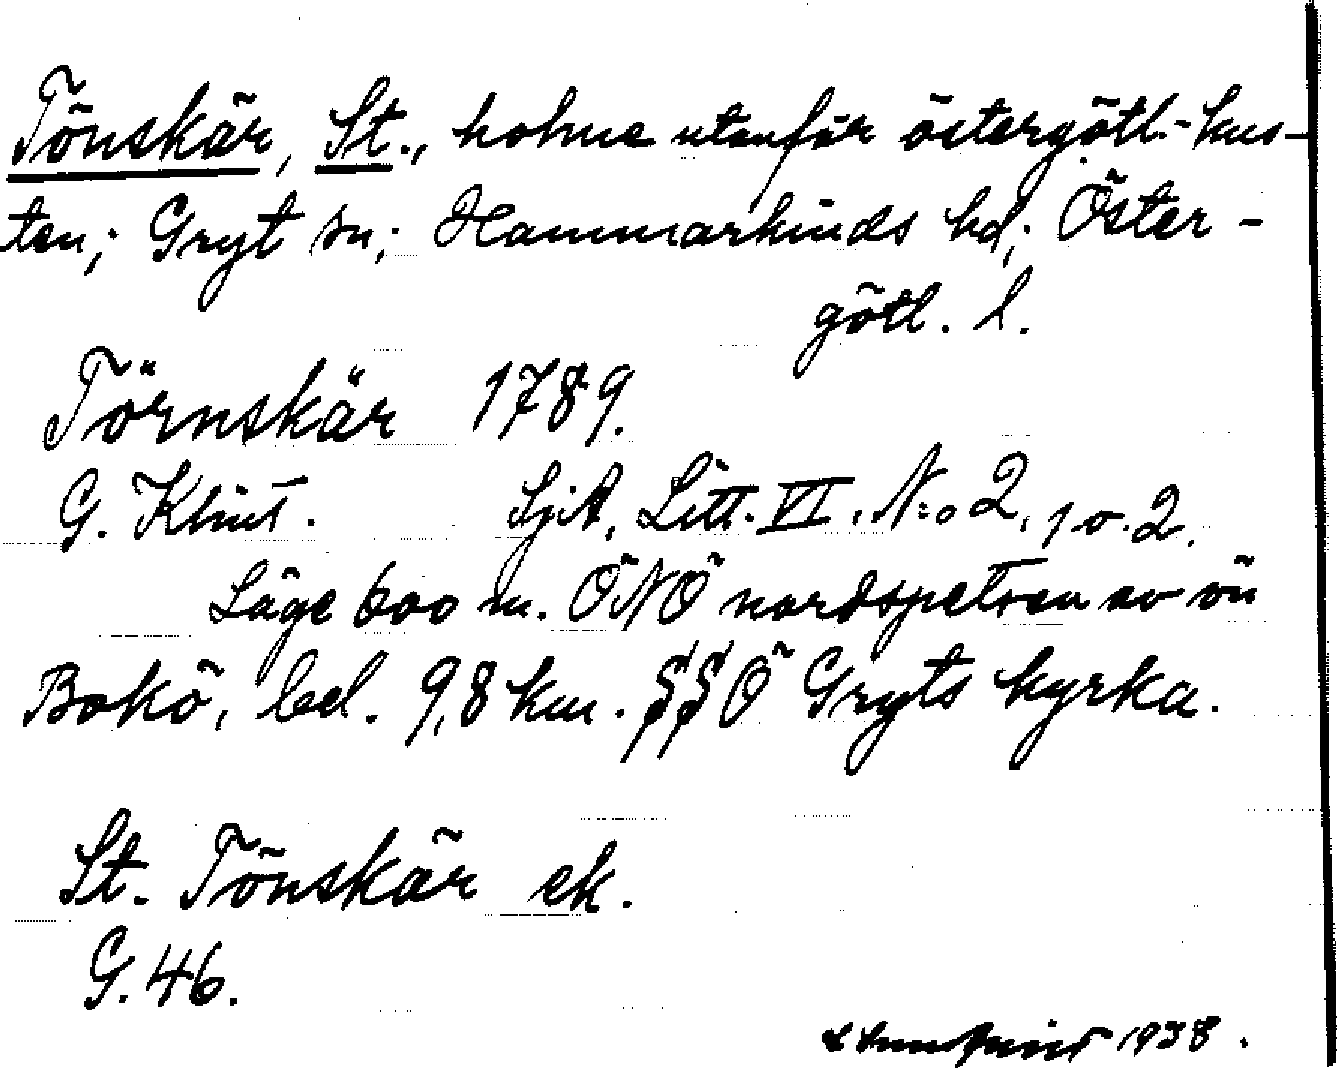 Tönskär, St., holme utanför östergötl.-kus-
ten; Gryt sn; Hammarkinds hd; Öster-
götl. l.
Törnskär 1789.
G. Klint. SjA, Litt. VI. N:o 2, 1 o. 2.
Läge 600 m. ÖNÖ nordspetsen av ön
Bokö, bel. 9,8 km. SSÖ Gryts kyrka.
St. Tönskär ek.
G. 46.
1938.